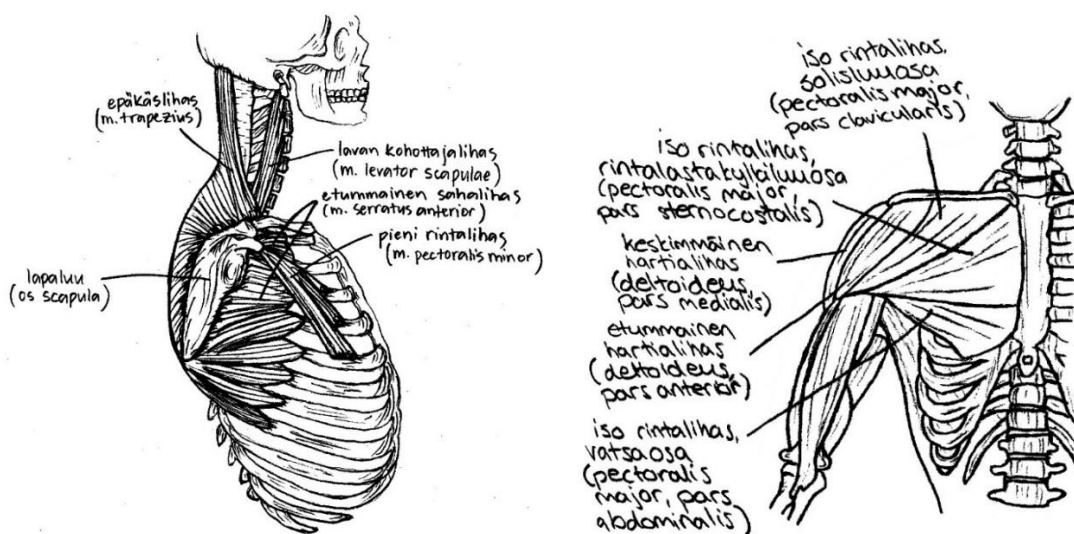 epäkäslihas
(m. trapezius)
lavan kohottajalihas
(m. levator scapulae)
etummainen sahalihas
(m. serratus anterior)
pieni rintalihas
(m. pectoralis minor)
lapaluu
(os scapula)
iso rintalihas,
solisluuosa
(pectoralis major,
pars clavicularis)
iso rintalihas,
rintalastakylkiluuosa
(pectoralis major
pars sternocostalis)
keskimmäinen
hartialihas
(deltoideus,
pars medialis)
etummainen
hartialihas
(deltoideus,
pars anterior)
iso rintalihas,
vatsaosa
(pectoralis
major, pars
abdominalis)